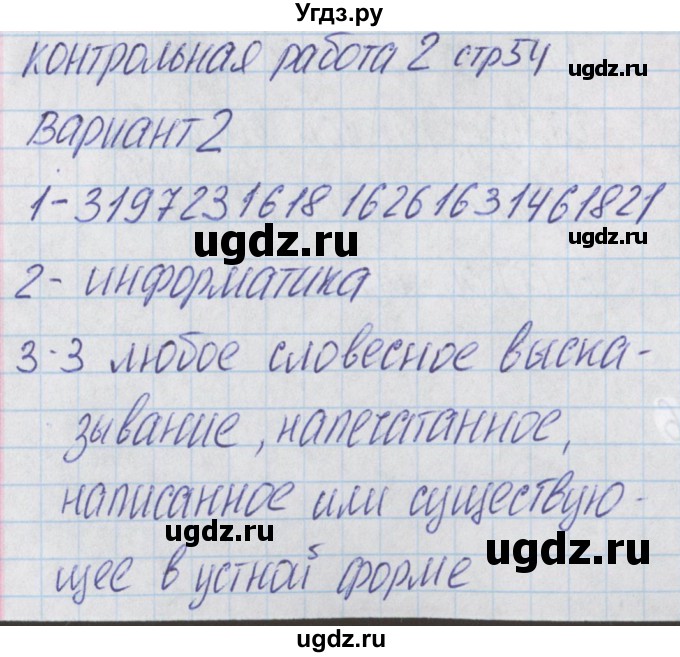 Угдз.ру
контрольная работа 2 стр54
ugdz.ru
вариант 2
1-3197231618 16261631461821
ugdz.ru
ugdz.ru
2- информатика
3-3 любое словесное выска-
зывание, напечатанное,
написанное или существую-
ugdz.ru
ugdz.ru
щее в устной форме
ugdz.ru